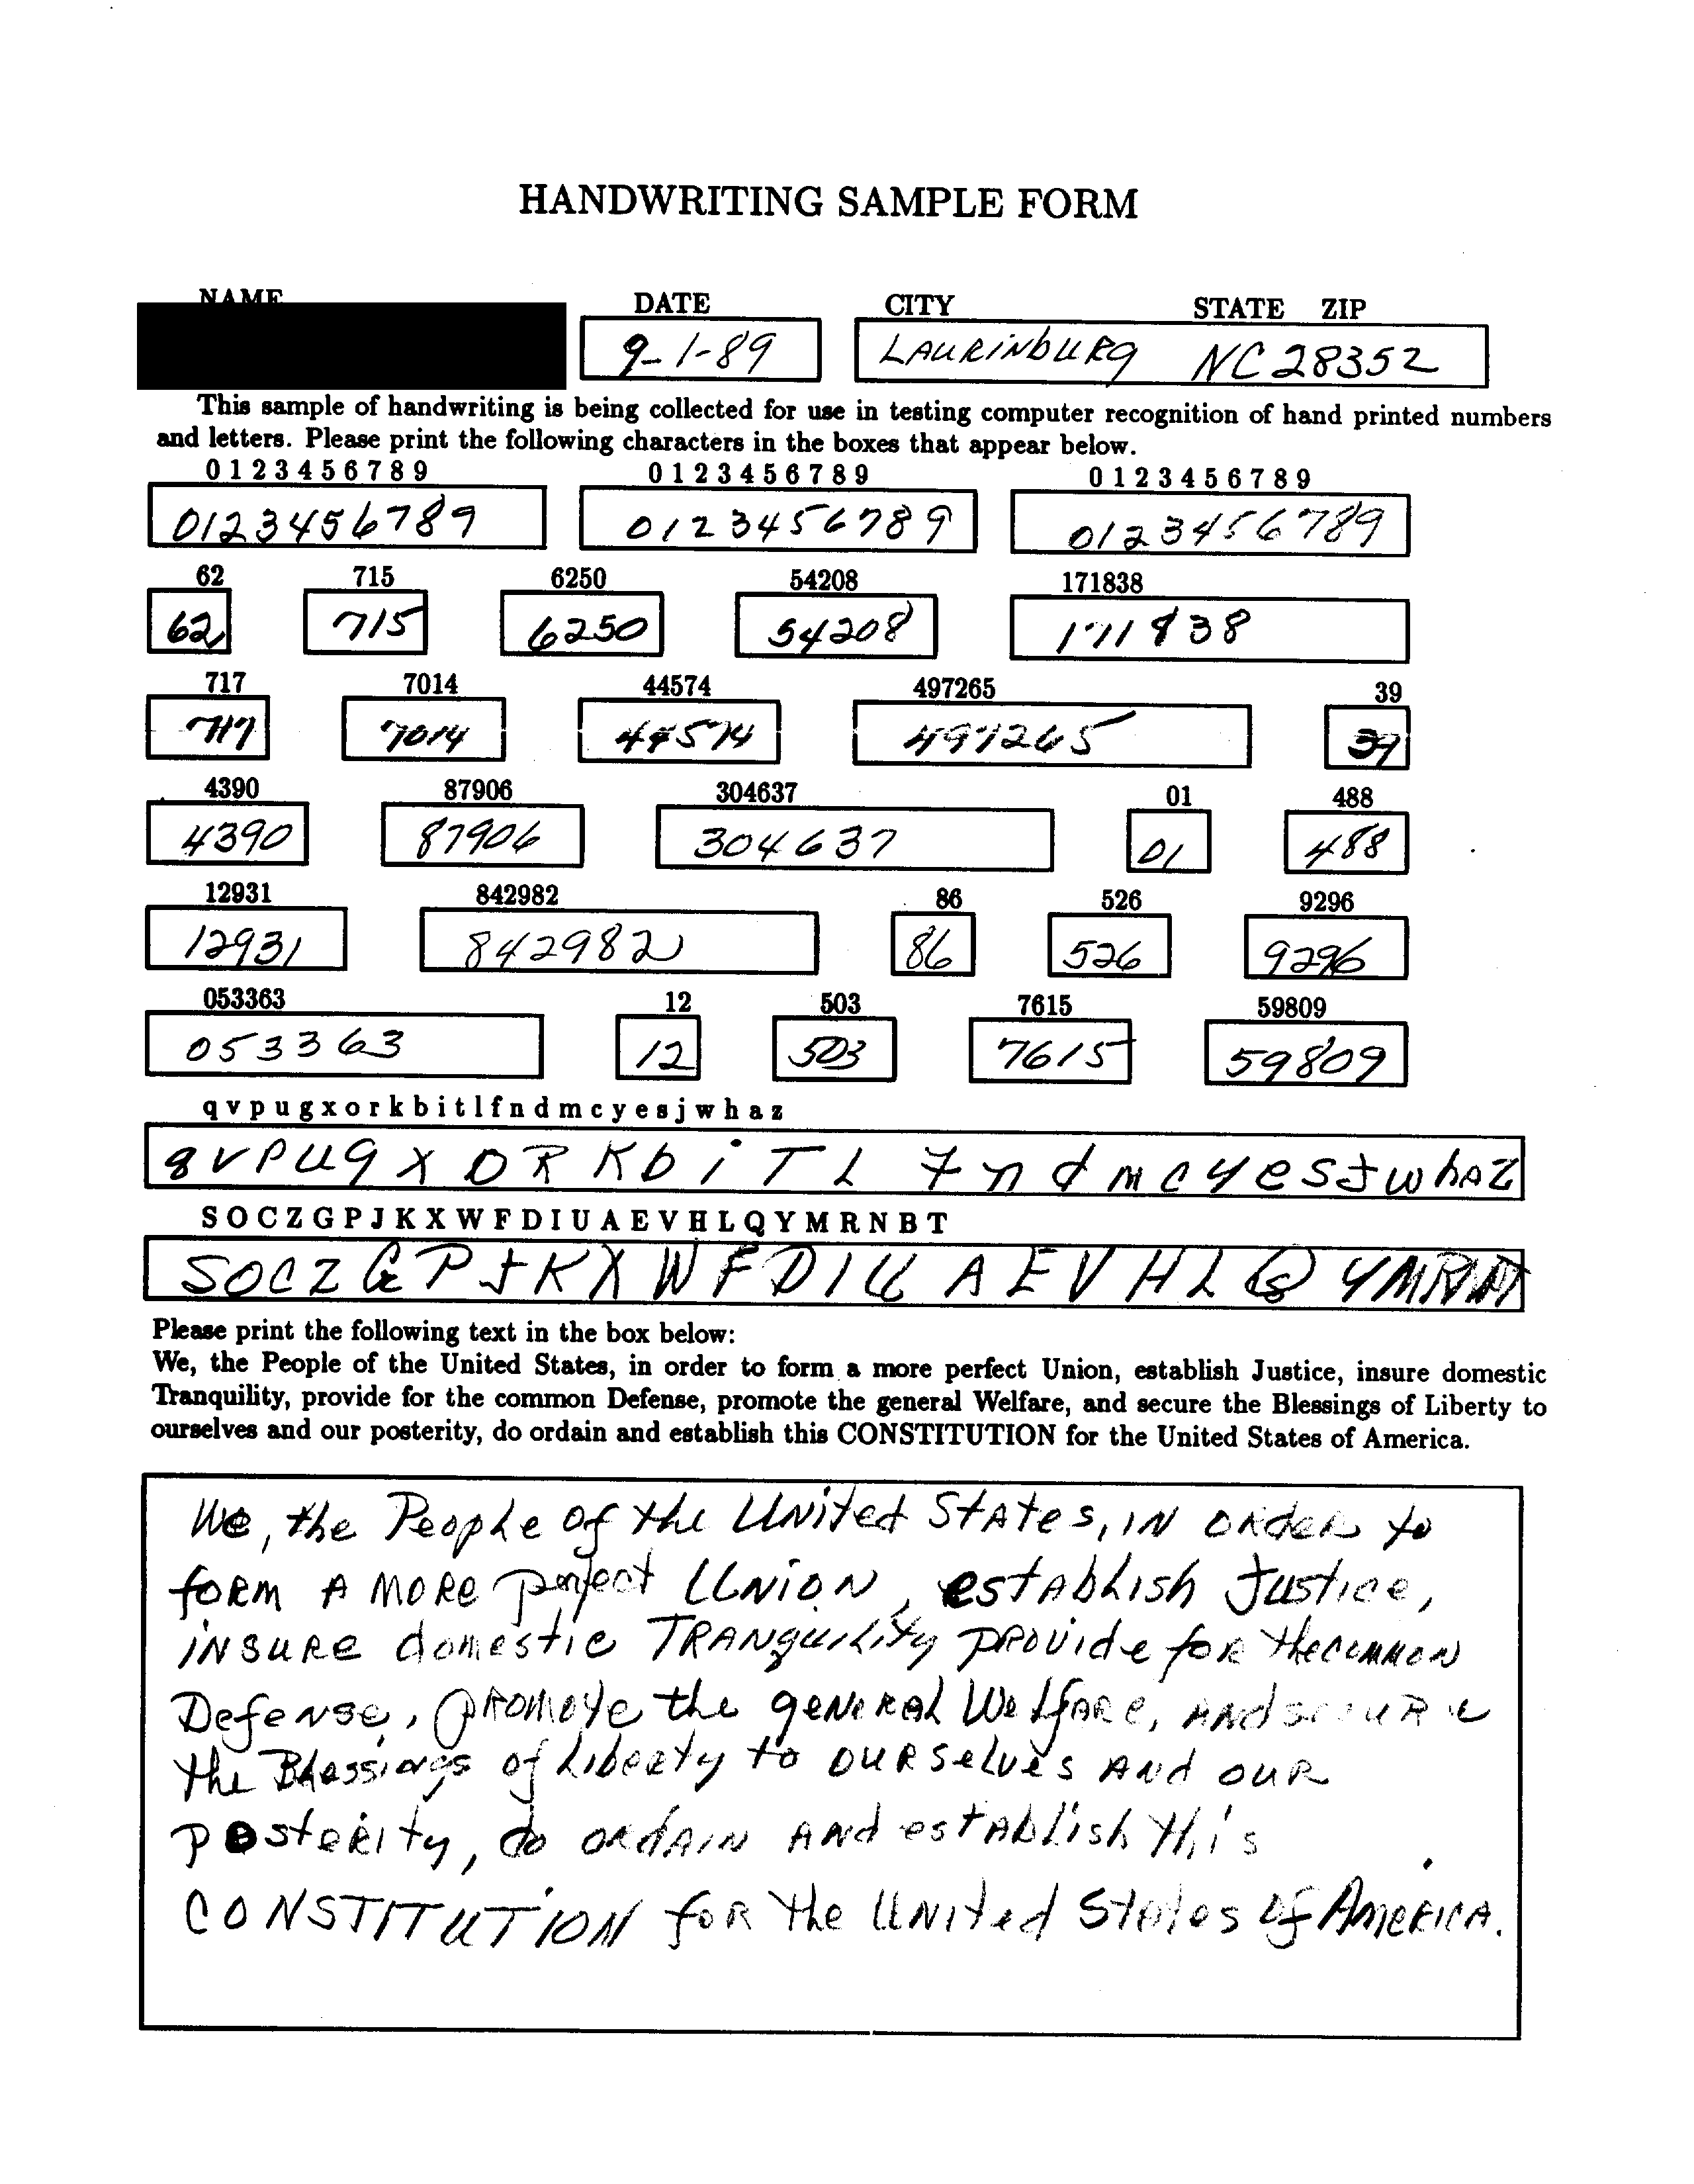 HANDWRITING SAMPLE FORM
NAME DATE CITY STATE ZIP
9-1-89 LAURINbURg NC 28352
This sample of handwriting is being collected for use in testing computer recognition of hand printed numbers
and letters. Please print the following characters in the boxes that appear below.
0 1 2 3 4 5 6 7 8 9 0 1 2 3 4 5 6 7 8 9 0 1 2 3 4 5 6 7 8 9
0123456789 0123456789 0123456789
62 715 6250 54208 171838
62 715 6250 54208 171838
717 7014 44574 497265 39
717 7014 44574 497265 39
4390 87906 304637 01 488
4390 87906 304637 01 488
12931 842982 86 526 9296
12931 842982 86 526 9296
053363 12 503 7615 59809
053363 12 503 7615 59809
q v p u g x o r k b i t l f n d m c y e s j w h a z
q v P U g X O R K b i T L f n d m c y e s J w h A Z
S O C Z G P J K X W F D I U A E V H L Q Y M R N B T
S O C Z G P J K X W F D I U A E V H L Q Y M R N
Please print the following text in the box below:
We, the People of the United States, in order to form a more perfect Union, establish Justice, insure domestic
Tranquility, provide for the common Defense, promote the general Welfare, and secure the Blessings of Liberty to
ourselves and our posterity, do ordain and establish this CONSTITUTION for the United States of America.
We, the People of the UNited StAtes, IN ORdeR to
foRM A MORe perfect UNiON, estAbLish Justice,
iNSURe domestic TRANquiLity PROvide foR the coMMON
DefeNse, pRomote the geNeRAL WeLfARe, ANd secuRe
the BLessings of Liberty to OURSeLves ANd OUR
posteRity, do ORdAIN ANd estAbLish this
CONSTITUTION foR the UNited States of AmeRICA.